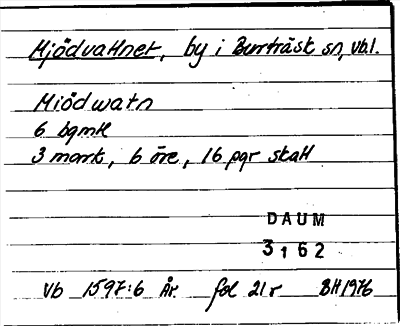 Mjödvattnet, by i Burträsk sn, vb.l.
Miödwatn
6 bgmtl
3 mark, 6 öre, 16 pgr skatt
DAUM
3162
Vb 1597:6 År. fol 21r BH1976